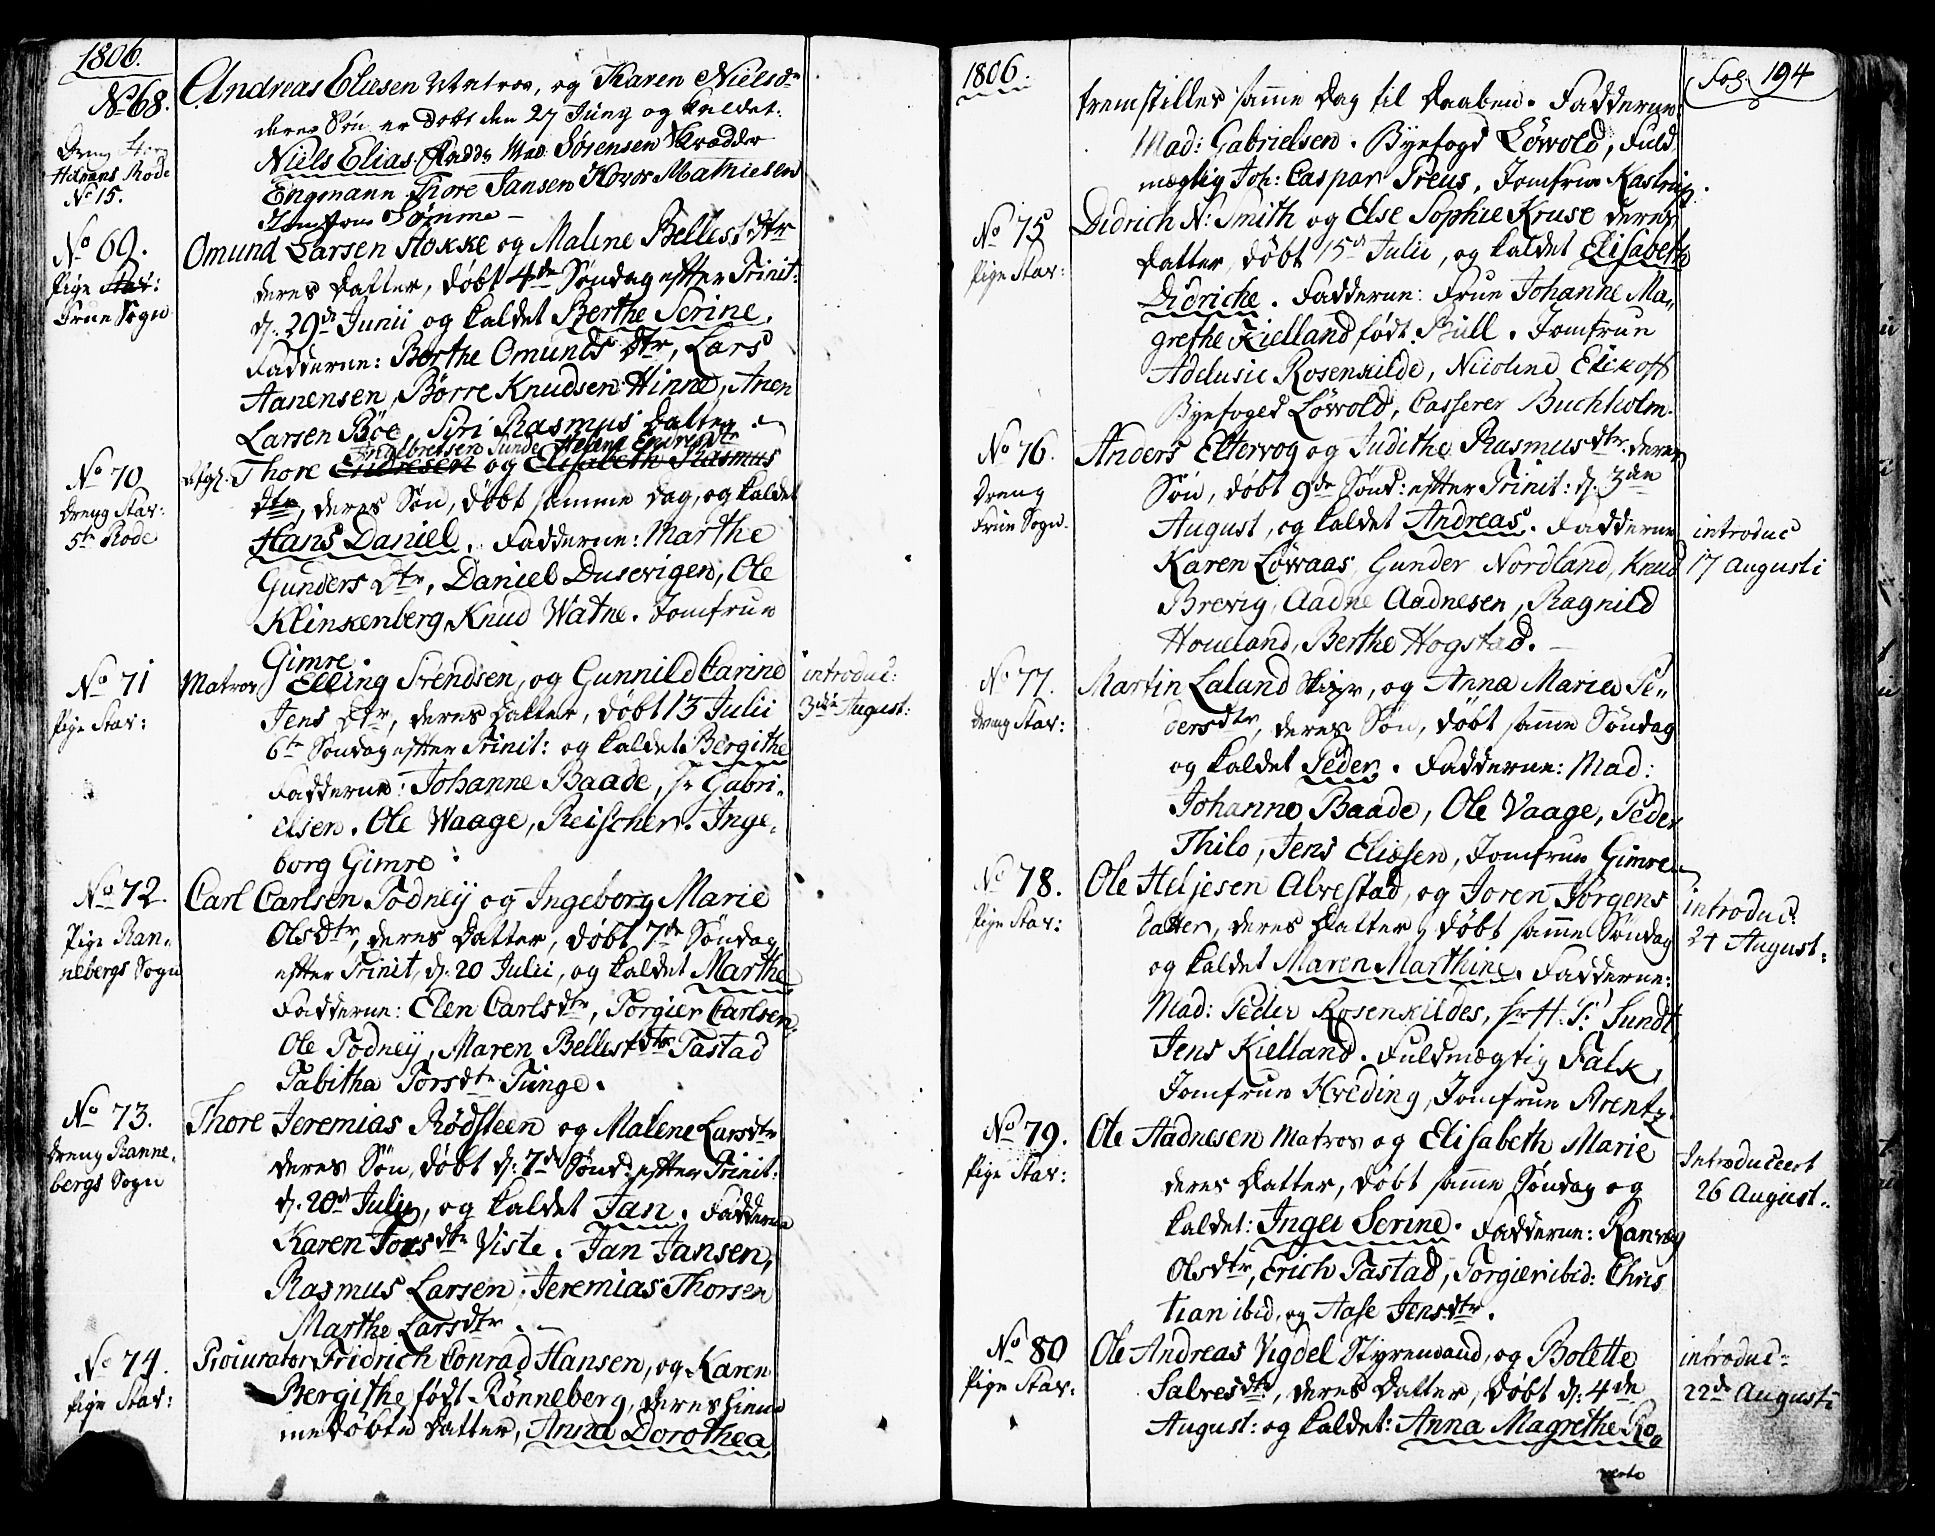 1806.
No 68.
Dreng
Hetrans Rode
No 15.
Andreas Eliesen Matros, og Karen Nielsdr
deres Søn er døbt den 27 Junij og kaldet:
Niels Elias. Fadd: Mad: Sørensen Skrædder
Engmann, Thore Jansen Kovos Mathiesen
Jomfrue Sømme –
No 69.
Pige Stav:
Frue Sogn
Omund Larsen Stokke og Malene Bellest Dtr
deres Datter, døbt 4de Søndag efter Trinit:
d. 29de Junii og kaldet Berthe Serine.
Fadderne: Berthe Omunds Dtr, Lars
Aanensen, Børre Knudsen Hinne, Anen
Larsen Bøe, Siri Rasmus Datter
No 70
Dreng Stav:
5te Rode
Ingelbretsen Sunde Helene Endresdtr
Thore Endresen og Elisabeth Rasmus
Dtr, deres Søn, døbt samme Dag, og kaldet
Hans Daniel. Fadderne: Marthe
Gunders Dtr, Daniel Dusevigen, Ole
Klinkenberg, Knud Watne. Jomfrue
Gimre.
No 71
Pige Stav:
Matros Elling Svendsen, og Gunnild Carine
Jens Dtr, deres Datter, døbt 13 Julii
6te Søndag efter Trinit: og kaldet Bergithe
Fadderne: Johanne Baade, Hr Gabri-
elsen. Ole Waage, Reischer. Inge-
borg Gimre:
introduc:
3die August:
No 72.
Pige Ran-
nebergs Sogn
Carl Carlsen Todneÿ og Ingeborg Marie
Olsdtr, deres Datter, døbt 7de Søndag
efter Trinit, d. 20 Julii, og kaldet Marthe
Fadderne: Elen Carlsdtr, Torgier Carlsen,
Ole Todneÿ, Maren Bellestdtr Tastad
Tabitha Torsdtr Tunge.
No 73.
Dreng Ranne-
bergs Sogn
Thore Jeremias Rødsteen og Malene Larsdtr
deres Søn, døbt d: 7de Sønd: efter Trinit:
d. 20de Julii, og kaldet Jan. Fadderne
Karen Torsdtr Viste. Jan Jansen,
Rasmus Larsen. Jeremias Thorsen
Marthe Larsdtr. –
No 74.
Pige Stav:
Procurator Fridrich Conrad Hansen, og Karen
Bergithe født Rønneberg, deres hiem-
medøbte Datter, Anna Dorothea
1806.
Fol: 194
fremstilles samme Dag til Daaben. Fadderne:
Mad: Gabrielsen. Byefogd Løwold, Fuld
mægtig Joh: Caspar Preus, Jomfrue Kastrup.
No 75
Pige Stav:
Didrich N: Smith og Else Sophie Kruse deres
Datter, døbt 15de Julii, og kaldet Elisabeth
Didriche. Fadderne: Frue Johanne Ma-
grethe Kielland født Bull. Jomfrue
Adelusie Rosenkilde, Nicoline Eikoff
Byefoged Løwold, Casserer Buchholm.
No 76.
Dreng
Frue Sogn.
Anders Eltervog og Judithe Rasmusdtr deres
Søn, døbt 9de Sønd: efter Trinit: d. 3die
August, og kaldet Andreas. Fadderne
Karen Løvaas, Gunder Nordland, Knud
Brevig, Aadne Aadnesen, Ragnild
Houeland, Berthe Hogstad. –
introduc
17 Augusti
No 77.
Dreng Stav:
Martin Laland Skipr, og Anna Maria Pe-
dersdtr, deres Søn, døbt samme Søndag
og kaldet Peder. Fadderne: Mad:
Johanne Baade, Ole Vaage, Peder
Thilo, Jens Eliesen, Jomfrue Gimre.
No 78.
Pige Stav:
Ole Heljesen Alvestad, og Joren Jörgens
datter, deres Datter, døbt samme Søndag
og kaldet Maren Marthine. Fadderne:
Mad: Peder Rosenkildes, Hr H. P: Sundt,
Jens Kielland. Fuldmægtig Falk,
Jomfrue Hveding, Jomfrue Arentz.
introduc:
24 August:
No 79.
Pige Stav:
Ole Aadnesen Matros og Elisabeth Marie
deres Datter, døbt samme Søndag og
kaldet: Inger Serine. Fadderne: Ranveg
Olsdtr, Erich Tastad, Torgier ibid: Chris
tian ibid, og Aase Jensdtr.
Introduceert
26 August:
No 80
Pige Stav:
Ole Andreas Vigdel Styrmand, og Bolette
Salvesdtr, deres Datter, døbt d: 4de
August: og kaldet: Anna Magrethe Ro-
introduc-
22de Augusti
verte